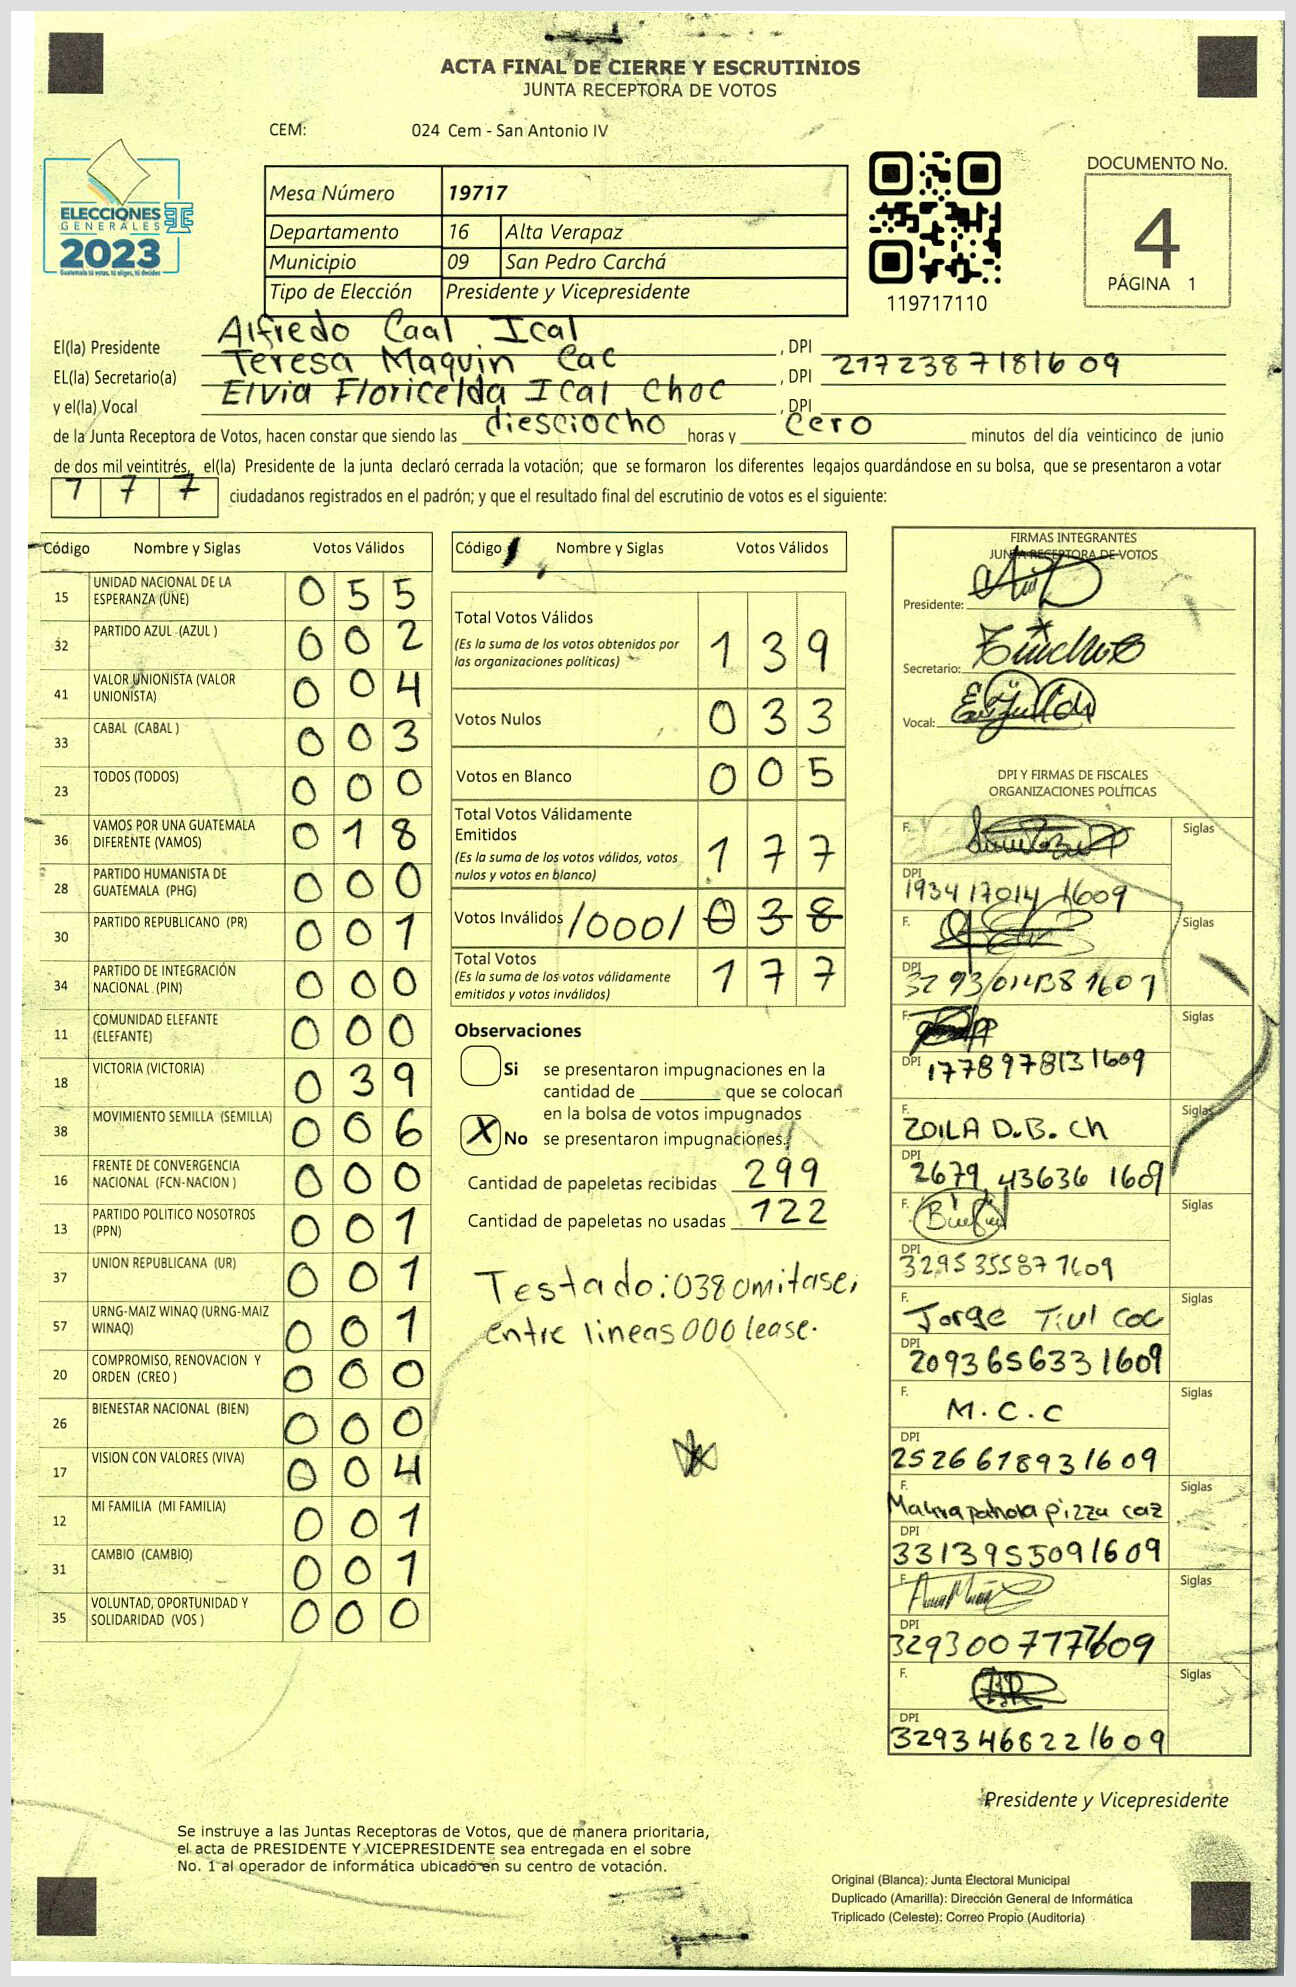 ACTA FINAL DE CIERRE Y ESCRUTINIOS
JUNTA RECEPTORA DE VOTOS
CEM: 024 Cem - San Antonio IV
ELECCIONES
GENERALES
2023
Guatemala tú votas, tú eliges, tú decides
Mesa Número 19717
Departamento 16 Alta Verapaz
Municipio 09 San Pedro Carchá
Tipo de Elección Presidente y Vicepresidente
119717110
DOCUMENTO No.
4
PÁGINA 1
El(la) Presidente Alfredo Caal Ical , DPI
EL(la) Secretario(a) Teresa Maquin Cac , DPI 2172387181609
y el(la) Vocal Elvia Floricelda Ical Choc , DPI
de la Junta Receptora de Votos, hacen constar que siendo las diesciocho horas y cero minutos del día veinticinco de junio
de dos mil veintitrés, el(la) Presidente de la junta declaró cerrada la votación; que se formaron los diferentes legajos guardándose en su bolsa, que se presentaron a votar
1 7 7 ciudadanos registrados en el padrón; y que el resultado final del escrutinio de votos es el siguiente:
Código Nombre y Siglas Votos Válidos
15 UNIDAD NACIONAL DE LA ESPERANZA (UNE) 0 5 5
32 PARTIDO AZUL (AZUL ) 0 0 2
41 VALOR UNIONISTA (VALOR UNIONISTA) 0 0 4
33 CABAL (CABAL ) 0 0 3
23 TODOS (TODOS) 0 0 0
36 VAMOS POR UNA GUATEMALA DIFERENTE (VAMOS) 0 1 8
28 PARTIDO HUMANISTA DE GUATEMALA (PHG) 0 0 0
30 PARTIDO REPUBLICANO (PR) 0 0 1
34 PARTIDO DE INTEGRACIÓN NACIONAL (PIN) 0 0 0
11 COMUNIDAD ELEFANTE (ELEFANTE) 0 0 0
18 VICTORIA (VICTORIA) 0 3 9
38 MOVIMIENTO SEMILLA (SEMILLA) 0 0 6
16 FRENTE DE CONVERGENCIA NACIONAL (FCN-NACION ) 0 0 0
13 PARTIDO POLITICO NOSOTROS (PPN) 0 0 1
37 UNION REPUBLICANA (UR) 0 0 1
57 URNG-MAIZ WINAQ (URNG-MAIZ WINAQ) 0 0 1
20 COMPROMISO, RENOVACION Y ORDEN (CREO ) 0 0 0
26 BIENESTAR NACIONAL (BIEN) 0 0 0
17 VISION CON VALORES (VIVA) 0 0 4
12 MI FAMILIA (MI FAMILIA) 0 0 1
31 CAMBIO (CAMBIO) 0 0 1
35 VOLUNTAD, OPORTUNIDAD Y SOLIDARIDAD (VOS ) 0 0 0
Código Nombre y Siglas Votos Válidos
Total Votos Válidos 1 3 9
(Es la suma de los votos obtenidos por
las organizaciones políticas)
Votos Nulos 0 3 3
Votos en Blanco 0 0 5
Total Votos Válidamente
Emitidos 1 7 7
(Es la suma de los votos válidos, votos
nulos y votos en blanco)
Votos Inválidos /000/ 0 3 8
Total Votos 1 7 7
(Es la suma de los votos válidamente
emitidos y votos inválidos)
Observaciones
Si se presentaron impugnaciones en la
cantidad de ________ que se colocan
en la bolsa de votos impugnados
X No se presentaron impugnaciones.
Cantidad de papeletas recibidas 299
Cantidad de papeletas no usadas 122
Testado: 038 omitase,
entre lineas 000 lease.
FIRMAS INTEGRANTES
JUNTA RECEPTORA DE VOTOS
Presidente:
Secretario:
Vocal:
DPI Y FIRMAS DE FISCALES
ORGANIZACIONES POLÍTICAS
F. Siglas
DPI 1934170141609
F. Siglas
DPI
F. Siglas
DPI 1778978131609
F. ZOILA D.B. Ch Siglas
DPI 2679 43636 1609
F. Siglas
DPI 3295355871609
F. Jorge Tiul Coc Siglas
DPI 2093656331609
F. M.C.C Siglas
DPI 2526618931609
F. pizza caz Siglas
DPI 3313955091609
F. Siglas
DPI
F. Siglas
DPI 3293468221609
Presidente y Vicepresidente
Se instruye a las Juntas Receptoras de Votos, que de manera prioritaria,
el acta de PRESIDENTE Y VICEPRESIDENTE sea entregada en el sobre
No. 1 al operador de informática ubicado en su centro de votación.
Original (Blanca): Junta Electoral Municipal
Duplicado (Amarilla): Dirección General de Informática
Triplicado (Celeste): Correo Propio (Auditoria)